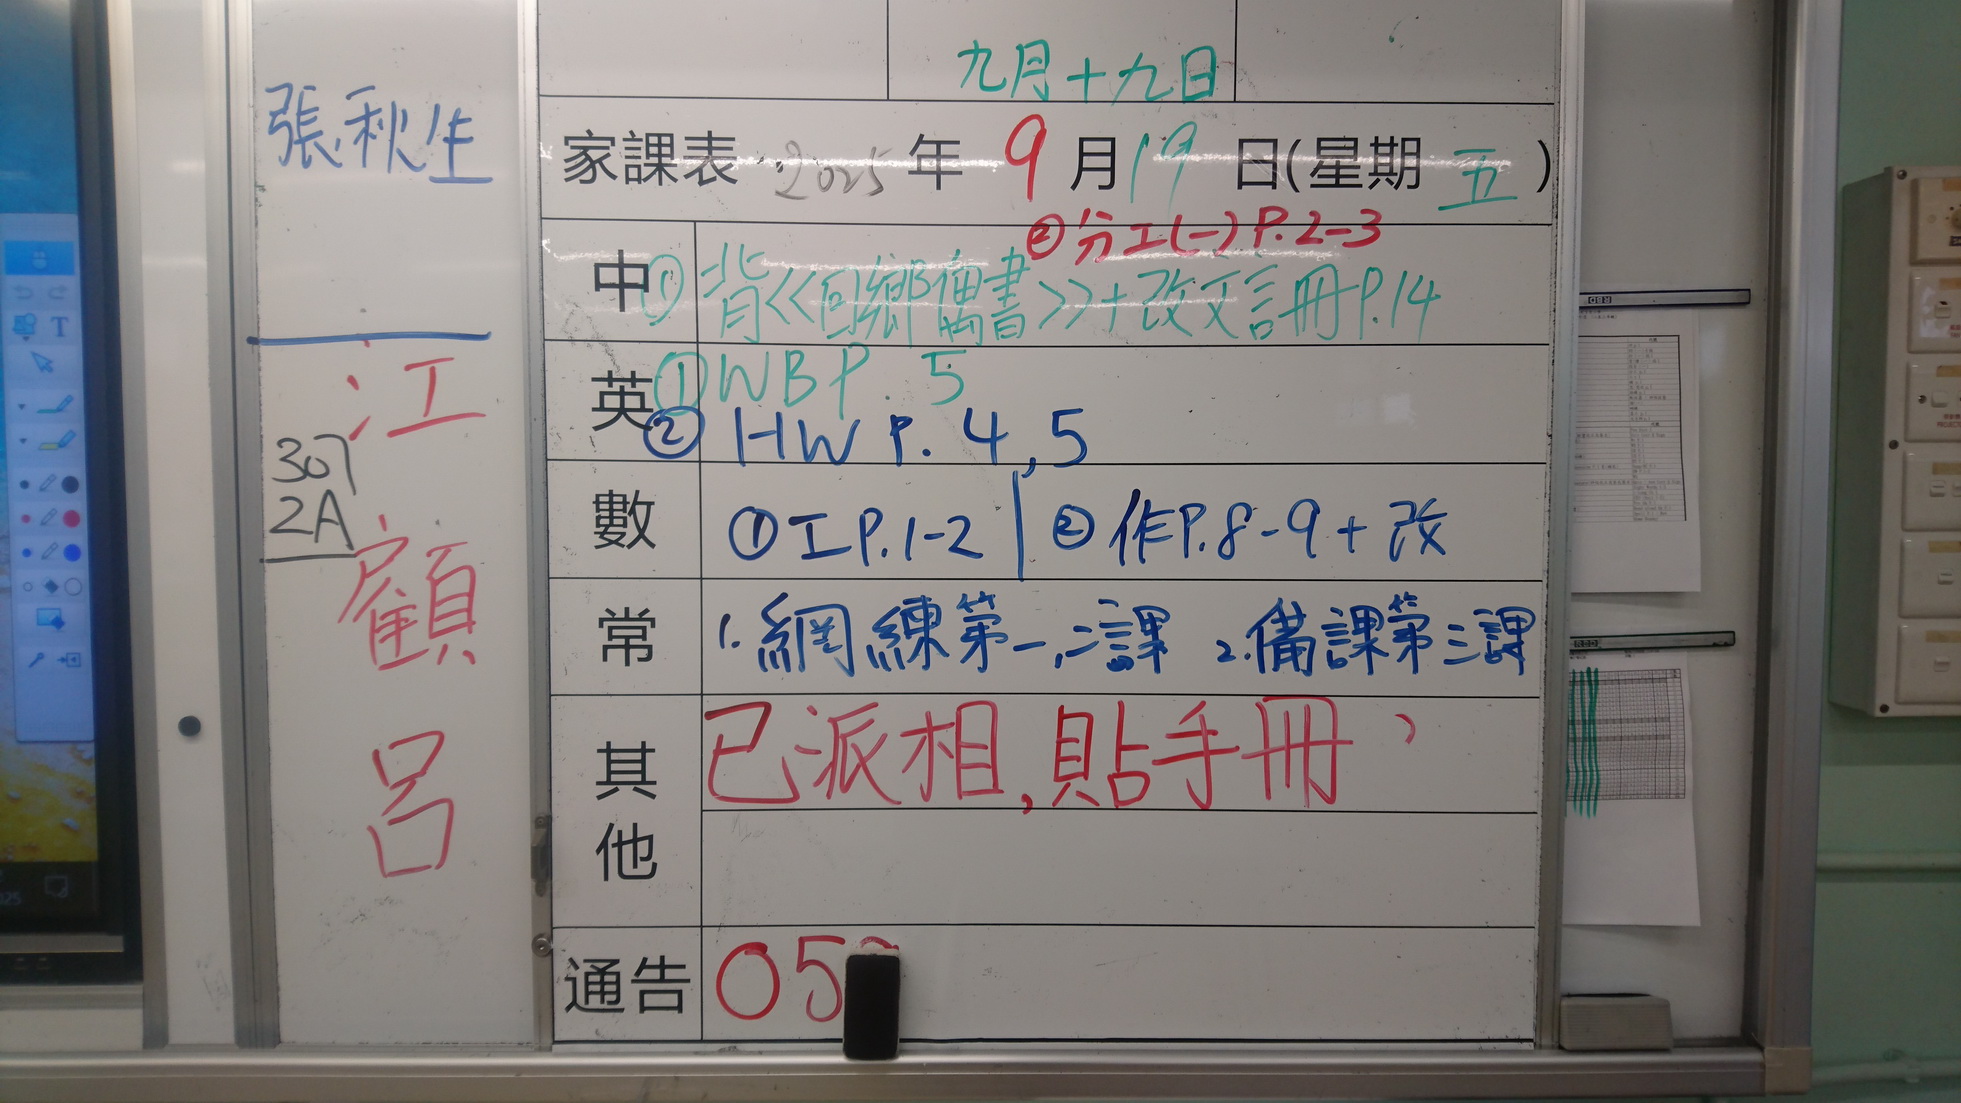 九月十九日
張秋生
家課表 2025 年 9 月 19 日(星期 五 )
②分工(一)P.2-3
中 ① 背<<回鄉偶書>>+改文言冊P.14
英 ① WB P. 5
② HW P. 4,5
307
2A
江
顧
呂
數 ①工P.1-2 | ②作P.8-9+改
常 1.網練第一,二課 2.備課第三課
其他 已派相,貼手冊
通告 05